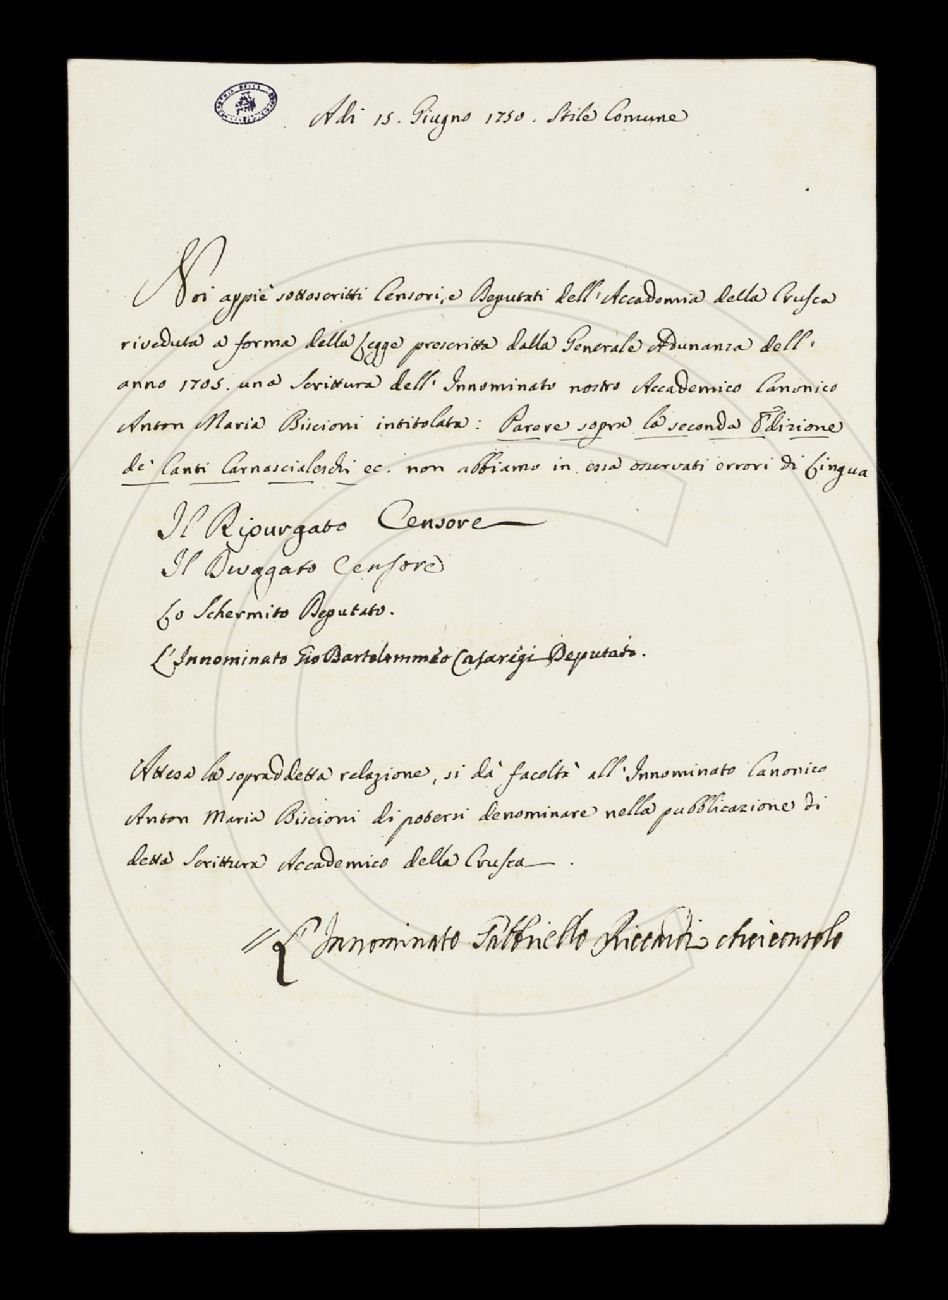 Adi 15. Giugno 1750. Stile Comune
Noi appiè sottoscritti Censori, e Deputati dell'Accademia della Crusca
riveduta a forma della Legge prescritta dalla Generale Adunanza dell'
anno 1705. una Scrittura dell'Innominato nostro Accademico Canonico
Anton Maria Biscioni intitolata: Parere sopra la seconda Edizione
de' Canti Carnascialeschi ec. non abbiamo in essa osservati errori di Lingua
Il Ripurgato Censore
Il Divagato Censore
Lo Schermito Deputato.
L'Innominato Gio Bartolommeo Casaregi Deputato.
Attesa la sopraddetta relazione, si dà facoltà all'Innominato Canonico
Anton Maria Biscioni di potersi denominare nella pubblicazione di
detta Scrittura Accademico della Crusca.
L'Innominato Gabbriello Riccardi Arciconsolo